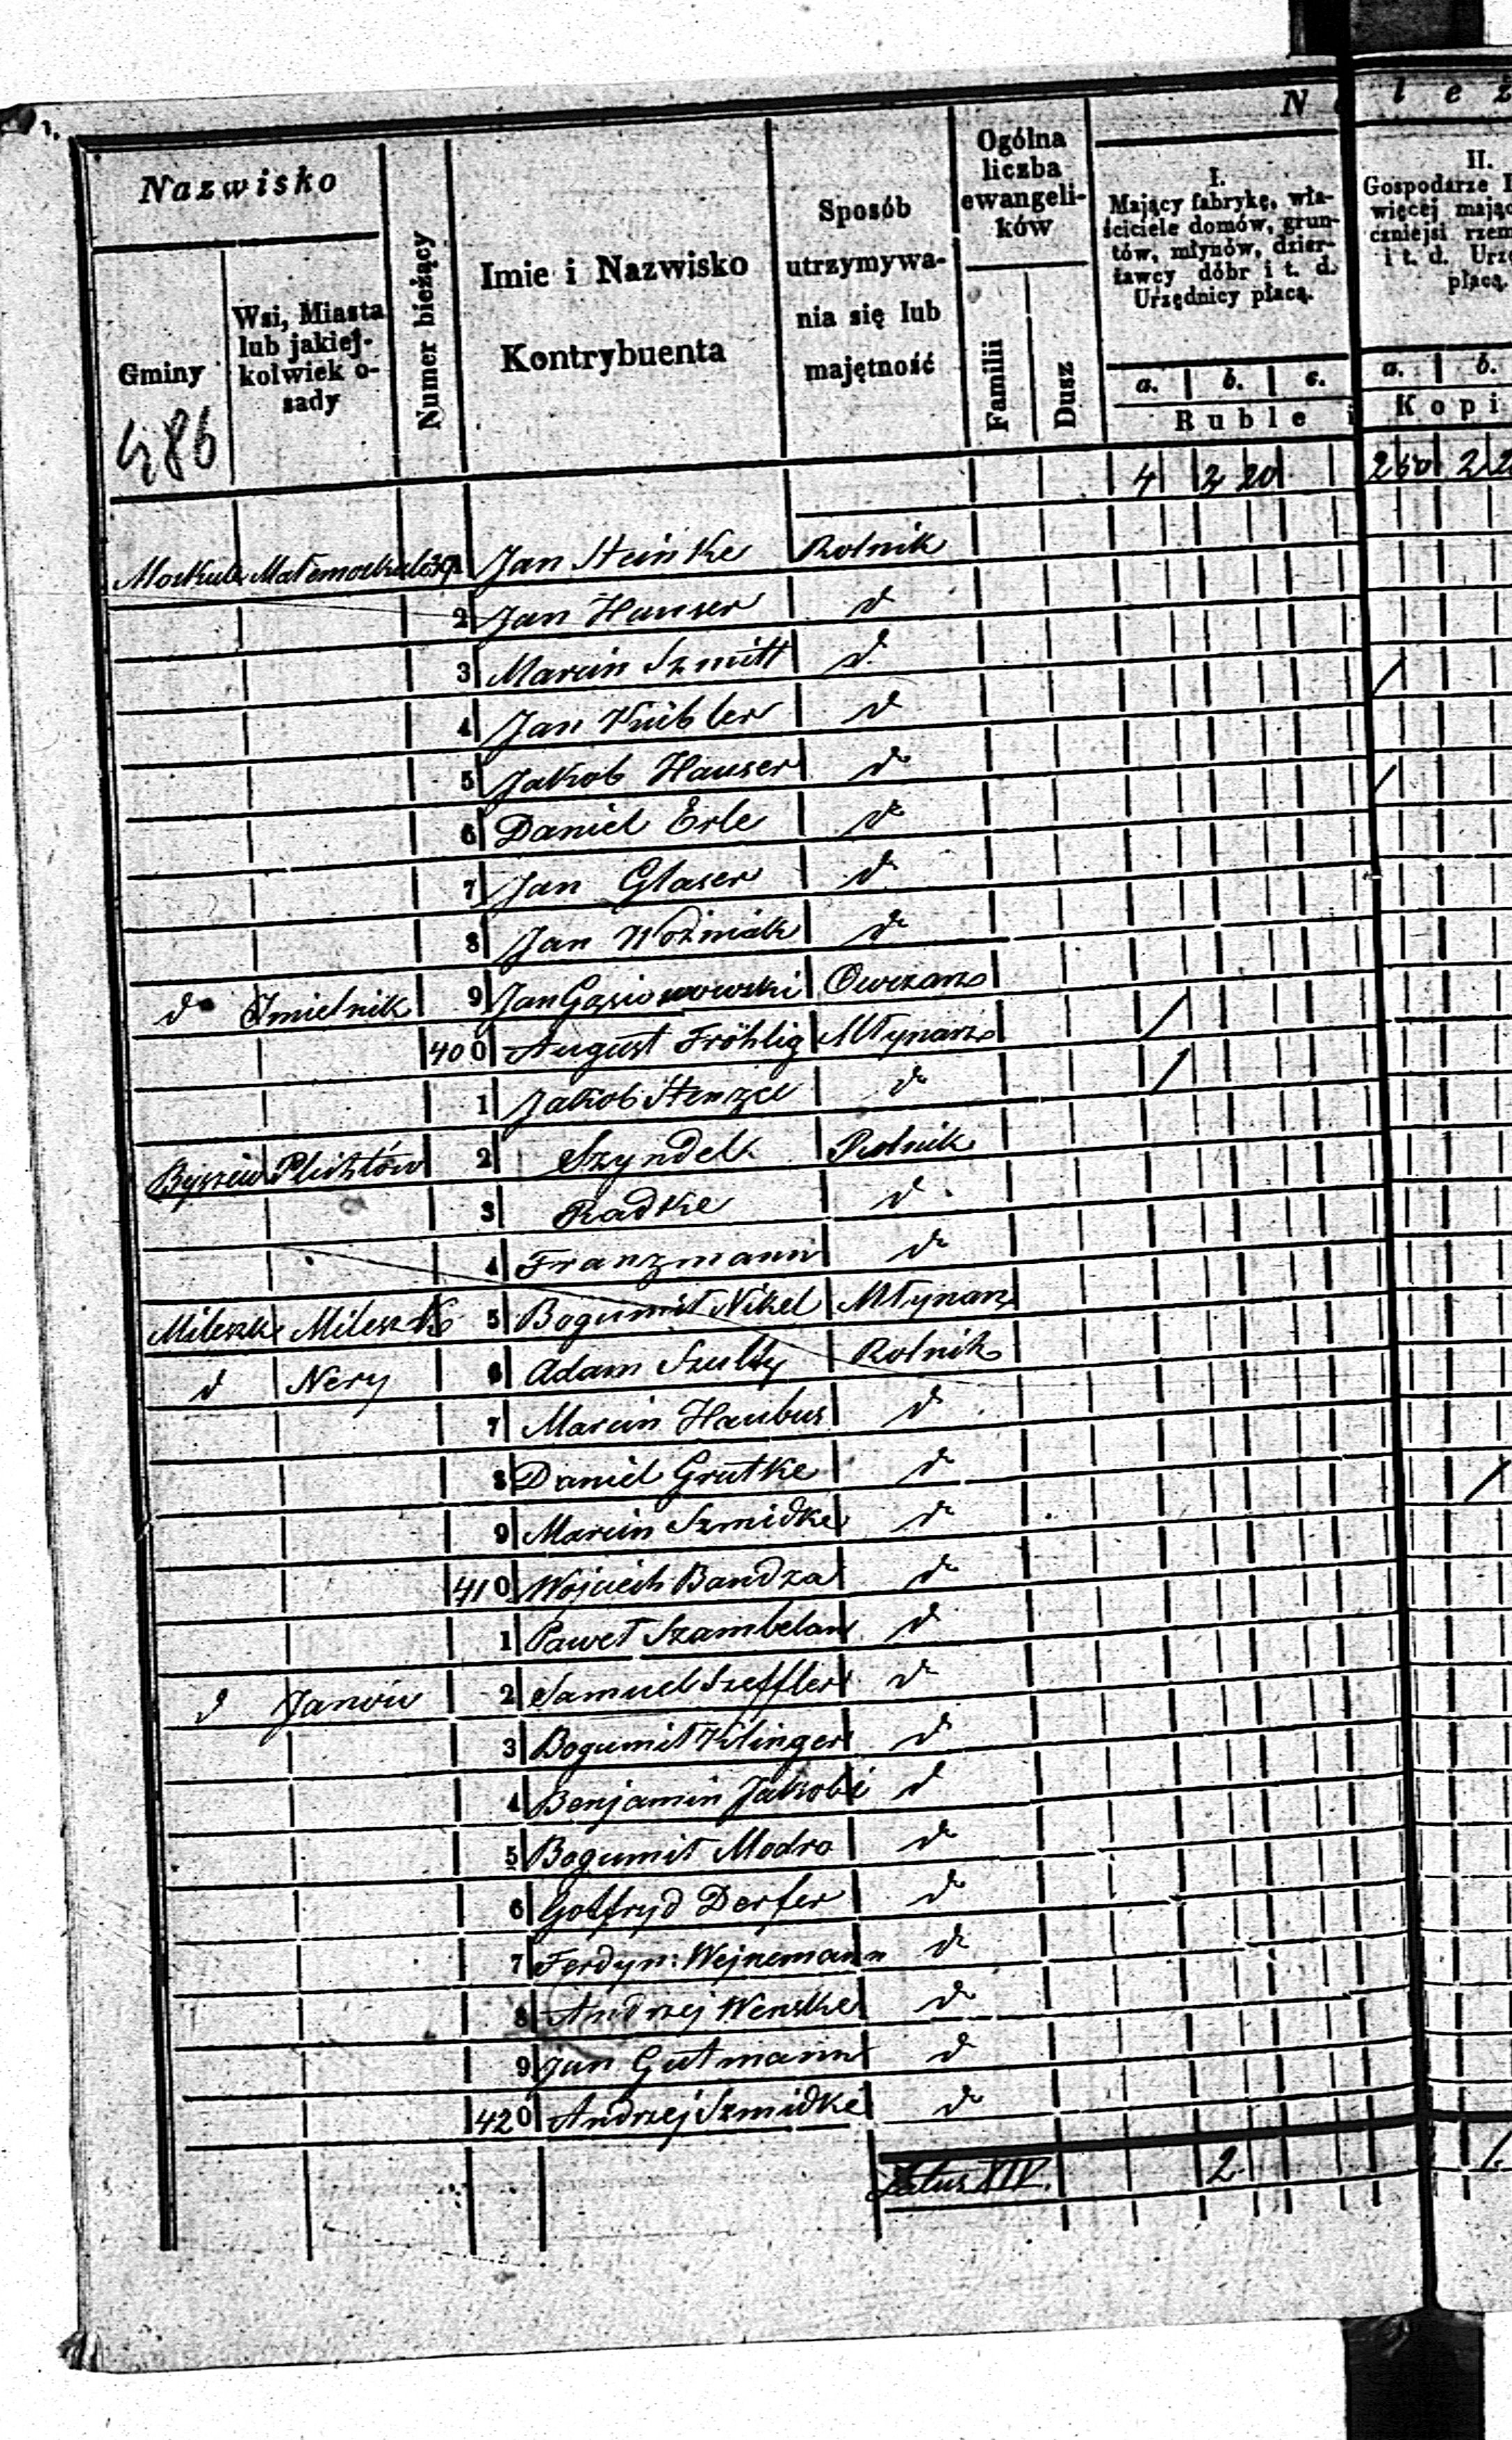 Nazwisko
Gminy
Wsi, Miasta
lub jakiej-
kolwiek o-
sady
Numer bieżący
Imie i Nazwisko
Kontrybuenta
Sposób
utrzymywa-
nia się lub
majętność
Ogólna
liczba
ewangeli-
ków
Familii
Dusz
N l e ż
I.
Mający fabrykę, wła-
ściciele domów, grun-
tów, młynów, dzier-
żawcy dóbr i t. d.
Urzędnicy płacą.
II.
Gospodarze
więcej mając
czniejsi rzem
i t. d. Urzę
płacą.
a. b. c. a. b.
Ruble i Kopi
486
4 2 20 2 50 2 2
Jan Heinke Rolnik
2 Jan Hauser d
3 Marcin Szmitt d
4 Jan Kübler d
5 Jakob Hauser do
6 Daniel Erle do
7 Jan Glaser d
8 Jan Woźniak do
do Imielnik 9 Jan Gąsiorowski Owczarz
400 August Fröhlig Młynarz
1 Jakob Stenzel do
Byszew Plichtów 2 Szyndel Rolnik
3 Radke d
4 Franzmann do
Mileszki Mileszki 5 Bogumił Nikel Młynarz
d Nery 6 Adam Szultz Rolnik
7 Marcin Haubus d
8 Daniel Grutke do
9 Marcin Szmidke do
410 Wojciech Bandza do
1 Paweł Szambelan d
d Janów 2 Samuel Szeffler do
3 Bogumił Klinger d
4 Benjamin Jakobi d
5 Bogumił Modro do
6 Gottfryd Derfer do
7 Ferdyn: Wejnemann do
8 Andrzej Wenske do
9 Jan Gutmann do
420 Andrzej Szmidke do
Latus XIV. 2 1